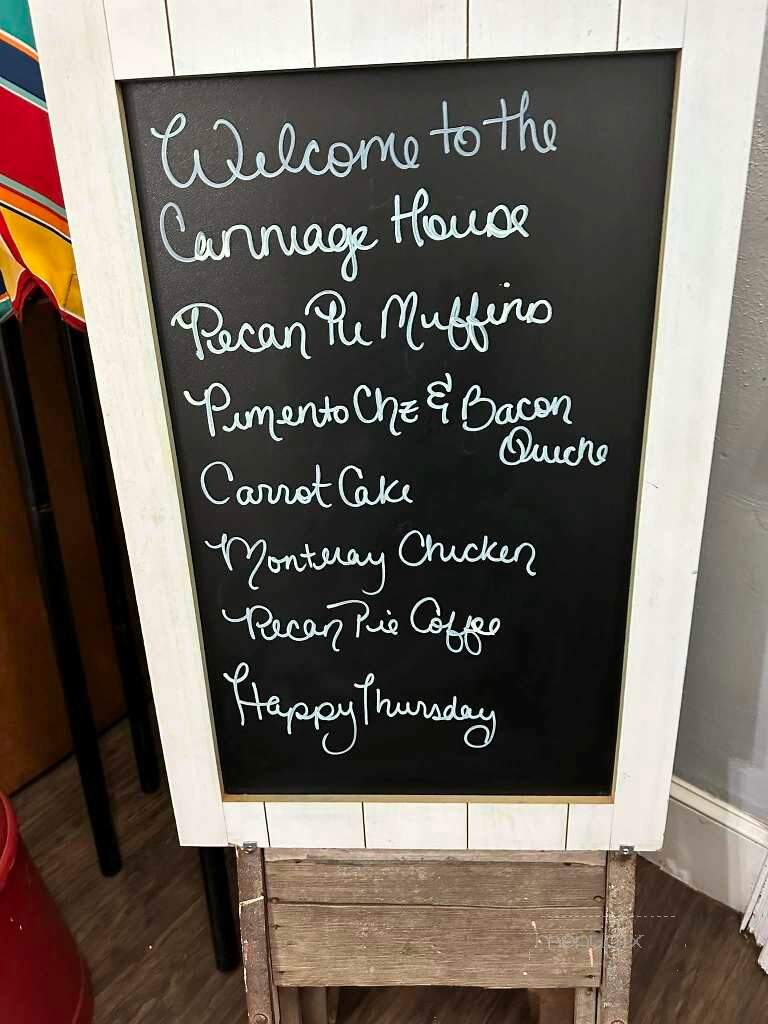 Welcome to the
Carriage House
Pecan Pie Muffins
Pimento Chz & Bacon
Quiche
Carrot Cake
Monteray Chicken
Pecan Pie Coffee
Happy Thursday